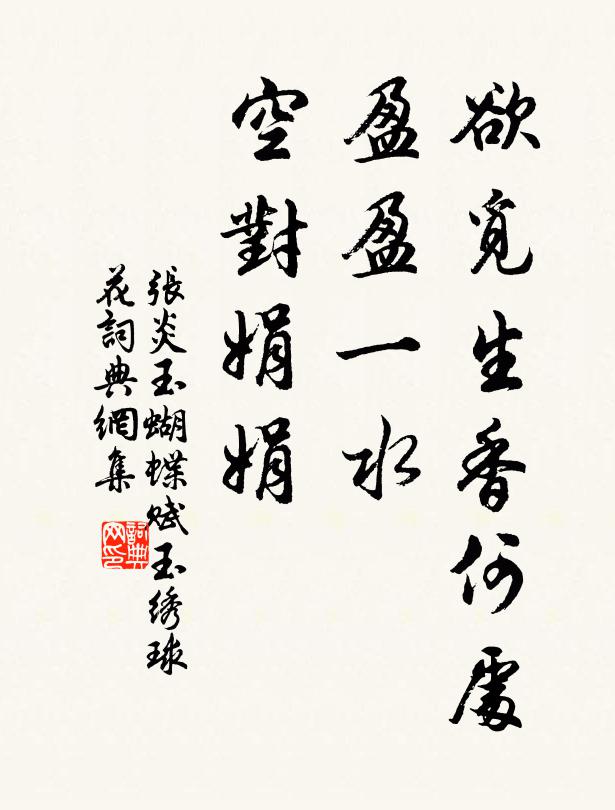 欲覓生香何處
盈盈一水
空對娟娟
張炎玉蝴蝶賦玉绣球
花詞典網集
詞典
网印